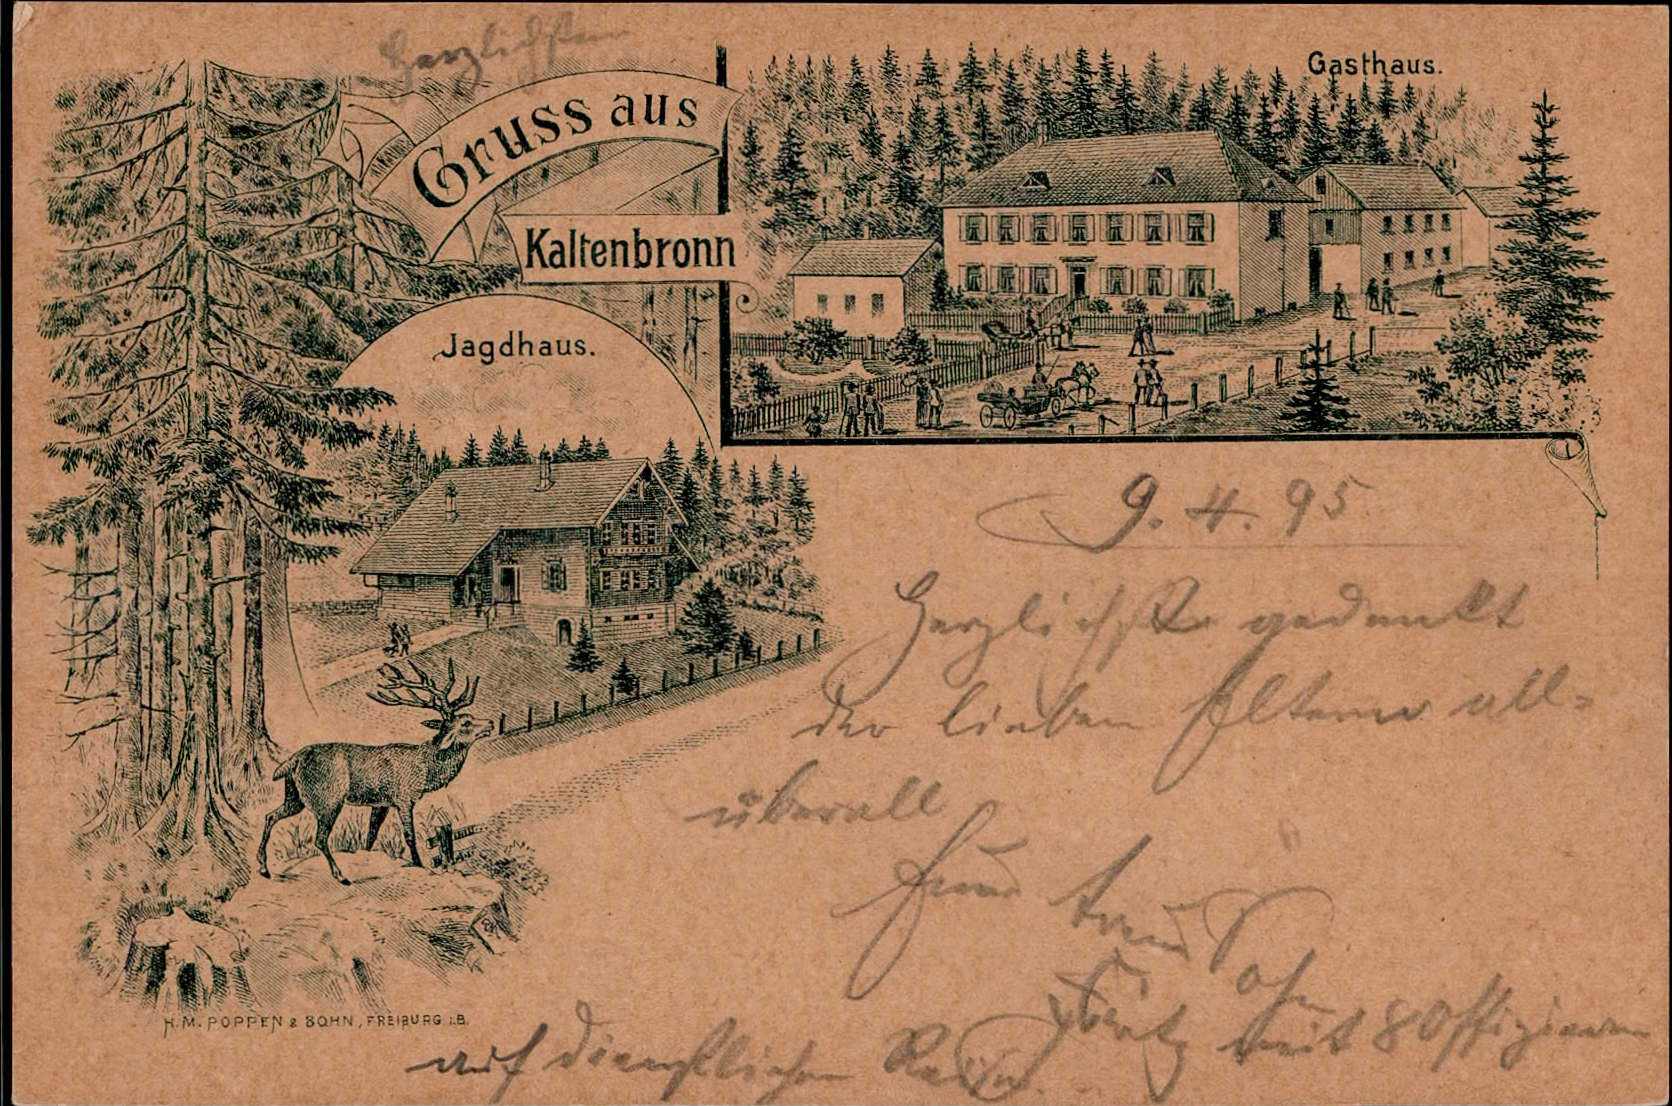 Herzlichsten
Gruss aus
Kaltenbronn
Gasthaus.
Jagdhaus.
9. 4. 95.
Herzlichst gedenkt
der lieben Eltern all-
überall
Euer treuer Sohn
Fritz mit 8 Offizieren
auf dienstlicher Reise.
H.M. POPPEN & SOHN, FREIBURG i.B.